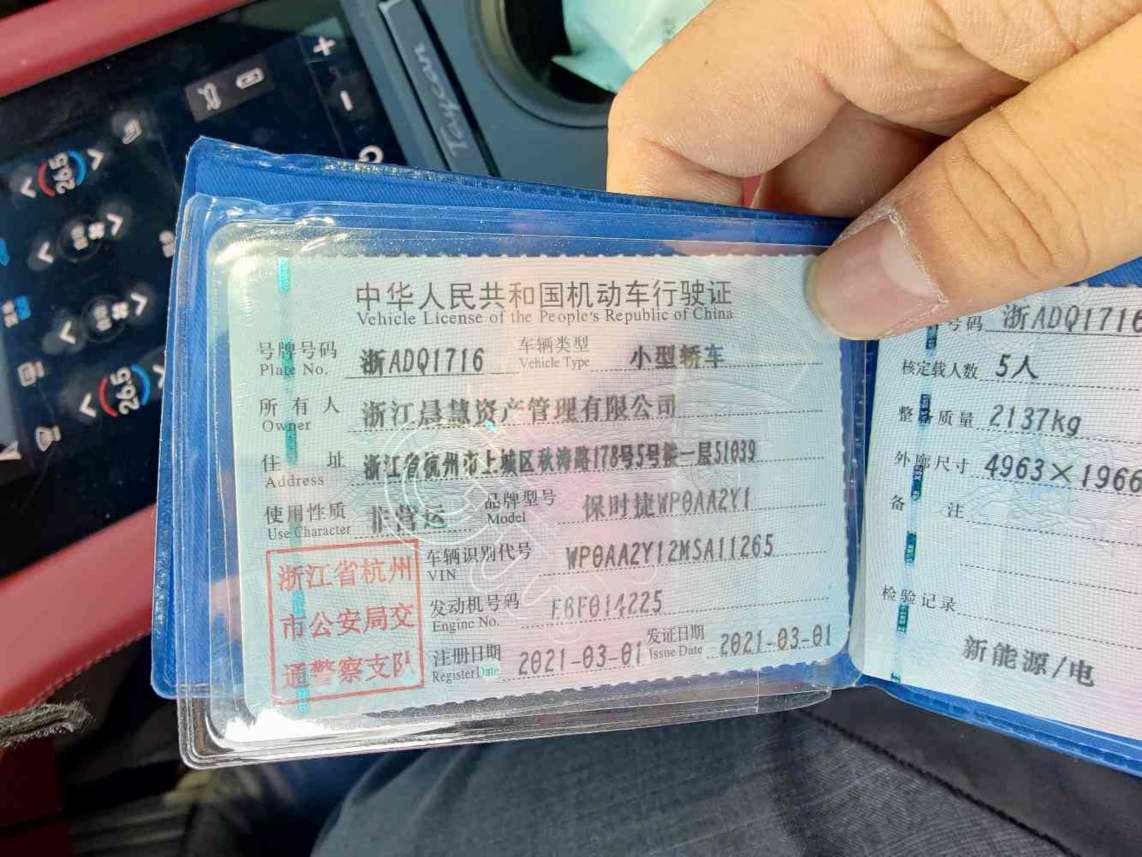 Taycan
26.5
26.5
中华人民共和国机动车行驶证
Vehicle License of the People's Republic of China
号牌号码 浙ADQ1716 车辆类型 小型轿车
Plate No. Vehicle Type
所有人 浙江晨慧资产管理有限公司
Owner
住址 浙江省杭州市上城区秋涛路178号5号楼一层51039
Address
使用性质 非营运 品牌型号 保时捷WP0AA2Y1
Use Character Model
浙江省杭州
市公安局交
通警察支队
车辆识别代号 WP0AA2Y12MSA11265
VIN
发动机号码 EBF014225
Engine No.
注册日期 2021-03-01 发证日期 2021-03-01
Register Date Issue Date
号码 浙ADQ1716
核定载人数 5人
整备质量 2137kg
外廓尺寸 4963×1966
备注
检验记录
新能源/电